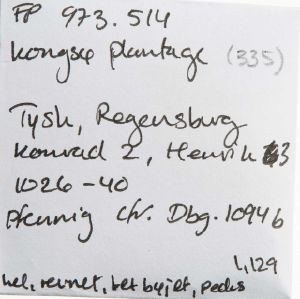 FP 973.514
Kongsø plantage (335)
Tysk, Regensburg
Konrad 2, Henrik 3
1026-40
Pfennig cfr. Dbg. 1094 b
1,129
hel, revnet, let bøjet, pecks